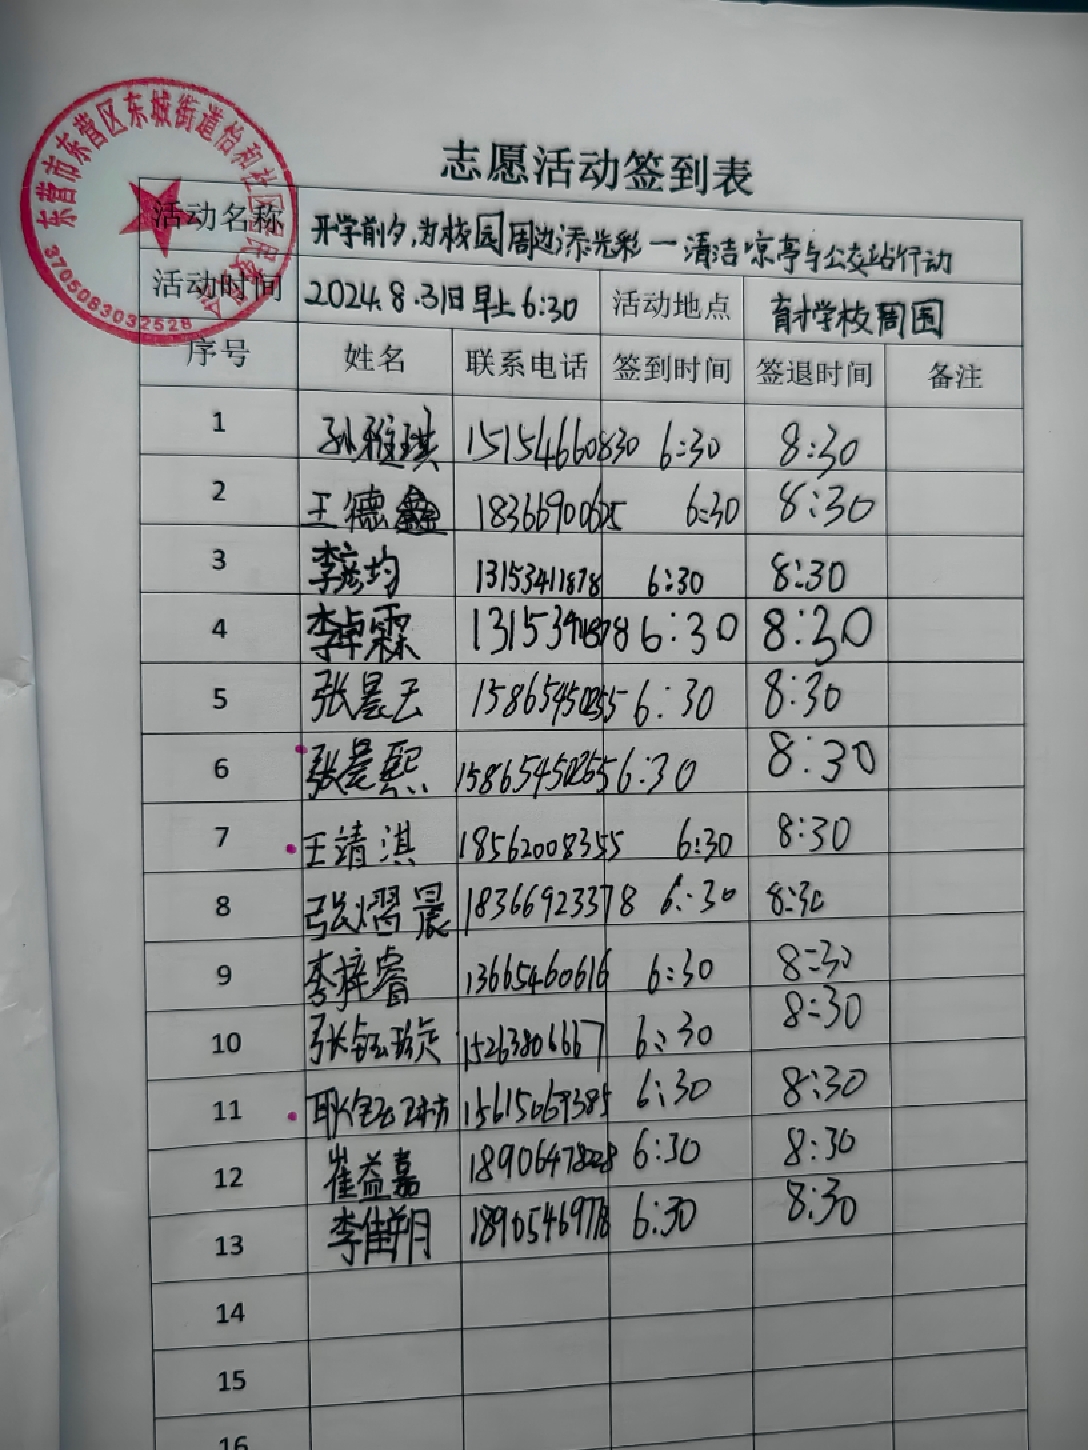 东营市东营区东城街道怡和社区居民委员会
3705083032528
志愿活动签到表
活动名称 开学前夕,为校园周边添光彩一清洁凉亭与公交站行动
活动时间 2024.8.31日早上6:30 活动地点 育才学校周围
序号 姓名 联系电话 签到时间 签退时间 备注
1 孙雅琪 15154660830 6:30 8:30
2 王德鑫 18366900625 6:30 8:30
3 李彦均 13153411878 6:30 8:30
4 李卓霖 13153411878 6:30 8:30
5 张晨云 15865450255 6:30 8:30
6 张晨熙 15865450255 6:30 8:30
7 王靖淇 18562008355 6:30 8:30
8 张熠晨 18366923378 6:30 8:30
9 李梓睿 13665460616 6:30 8:30
10 张钰璇 15263806667 6:30 8:30
11 15615069385 6:30 8:30
12 崔益嘉 18906478028 6:30 8:30
13 李佳朔 18905469778 6:30 8:30
14
15
16